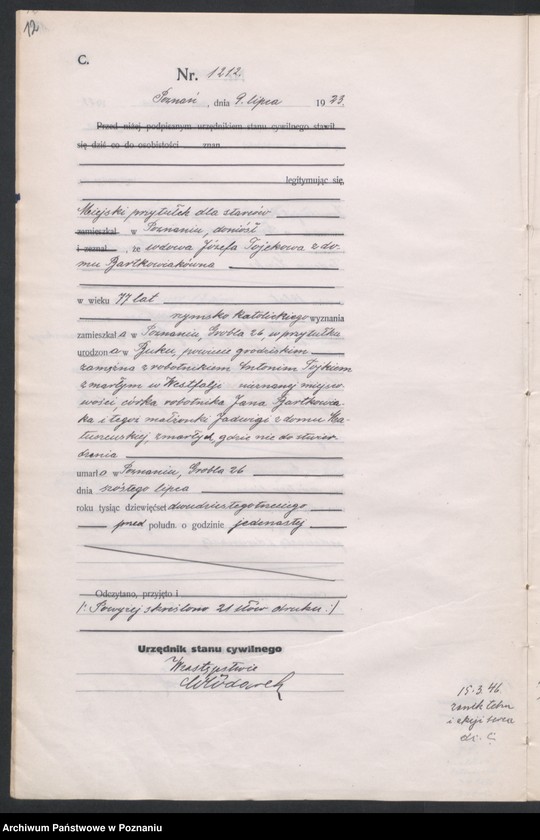 12
C.
Nr. 1212
Poznań, dnia 9. lipca 1923.
Przed niżej podpisanym urzędnikiem stanu cywilnego stawił
się dziś co do osobistości znan
legitymując się,
Miejski przytułek dla starców
zamieszkał w Poznaniu, doniósł
i zeznał, że wdowa Józefa Fojckowa z do-
mu Bartkowiakówna
w wieku 77 lat
rzymsko katolickiego wyznania
zamieszkała w Poznaniu, Grobla 26, w przytułku
urodzona w Buku, powiecie grodziskim
zamężna z robotnikiem Antonim
zmarłym w Westfalji nieznanej miejsco-
wości, córka robotnika Jana Bartkowia-
ka i tegoż małżonki Jadwigi z domu
zmarłych, gdzie nie do stwier-
dzenia
umarła w Poznaniu, Grobla 26
dnia szóstego lipca
roku tysiąc dziewięćset dwudziestego trzeciego
przed połudn. o godzinie jedenastej
Odczytano, przyjęto i
/: Powyżej skreślono 21 słów druku :/
Urzędnik stanu cywilnego
W zastępstwie
Włodarek
15.3.46.
Archiwum Państwowe w Poznaniu